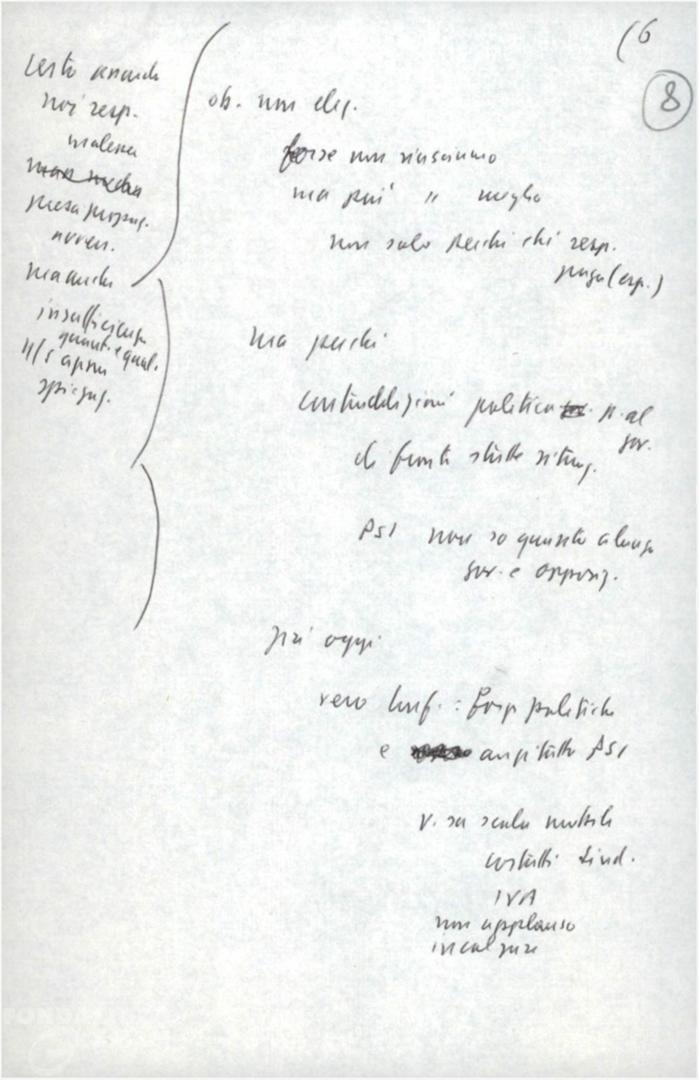 (6
8
certo anche
noi resp.
presa propag.
noven.
ma anche
insufficienza
quant. e qual.
n/s
spiegaz.
ob. non eleg.
forse non riusciamo
ma può " meglio
non solo perché chi resp.
paga (esp.)
ma perché
contraddizioni politica p. al
gov.
di fronte situaz.
PSI non so quanto a lungo
gov. e opposiz.
più oggi
vero conf. : forze politiche
e anzitutto PSI
v. su scala mobile
contatti sind.
IVA
non applauso
incalzare